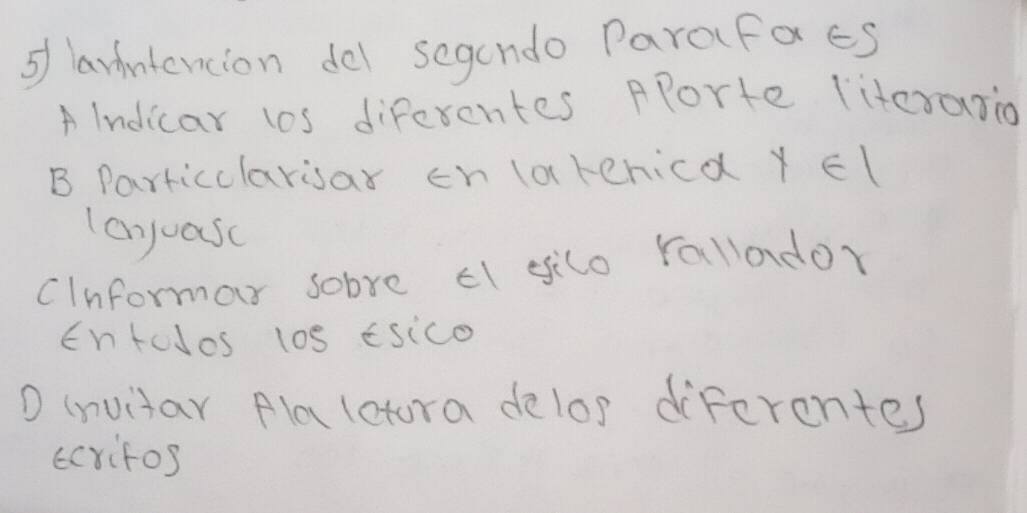 5) la intencion del segundo Parafa Es
A Indicar los diferentes APorte literario
B Particclarisar En la tenica Y El
lenjuase
C Informar sobre El esico rallador
En todos los Esico
D invitar Ala letura de los diferentes
Ecritos